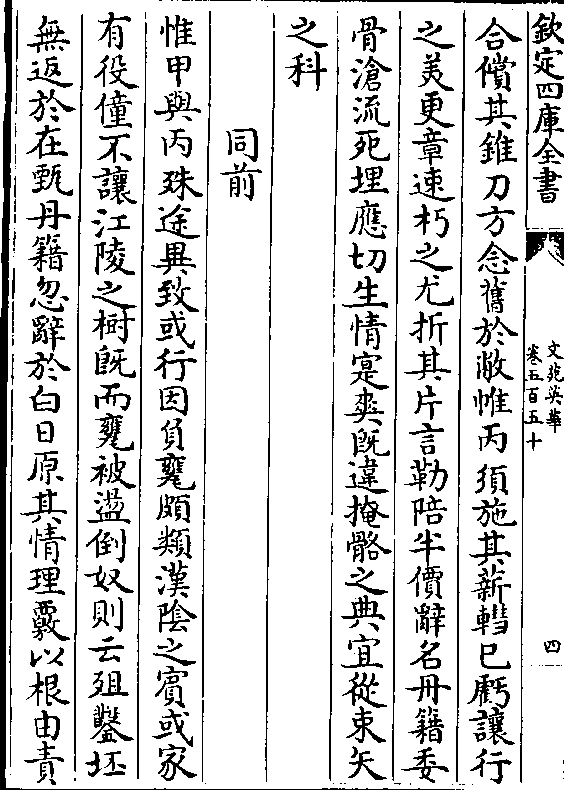 欽定四庫全書
文苑英華
卷五百五十
四
合償其錐刀方念舊於敝帷丙須施其薪轊已虧讓行
之美更章速朽之尤折其片言勒陪半價辭名丹籍委
骨滄流死埋應切生情寔爽旣違掩骼之典宜從束矢
之科
同前
惟甲與丙殊途異致或行因負甕頗類漢陰之賓或家
有役僮不讓江陵之樹旣而甕被盪倒奴則云殂鑿坯
無返於在甄丹籍忽辭於白日原其情理覈以根由責